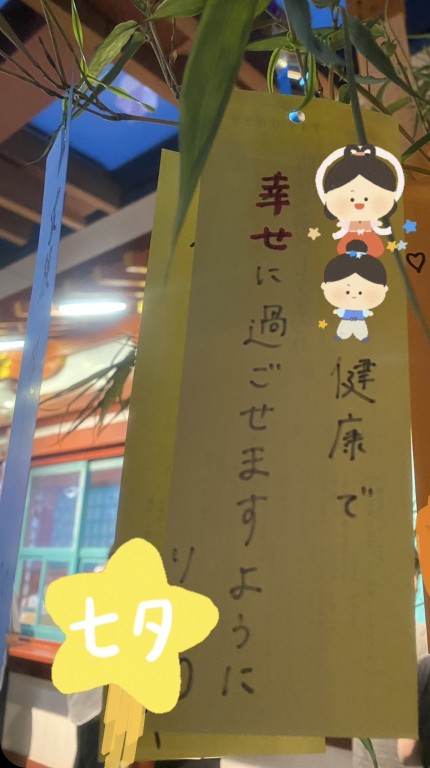 健康で
幸せに過ごせますように
り
七夕